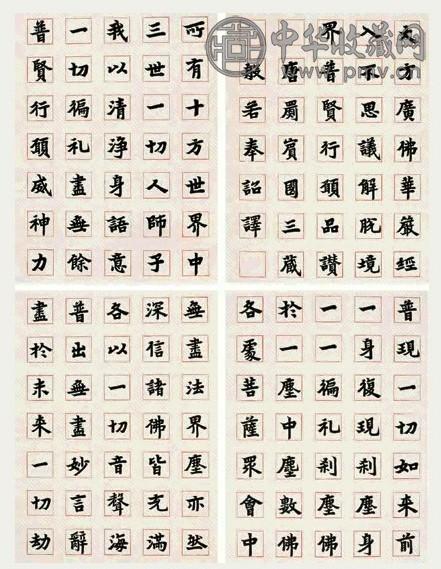 大方廣佛華嚴經
入不思議解脫境
界普賢行願品讚
唐罽賓國三藏
般若奉詔譯
所有十方世界中
三世一切人師子
我以清淨身語意
一切徧礼盡無餘
普賢行願威神力
普現一切如來前
一身復現剎塵身
一一徧礼剎塵佛
於一塵中塵數佛
各處菩薩眾會中
無盡法界塵亦然
深信諸佛皆充滿
各以一切音聲海
普出無盡妙言辭
盡於未來一切劫
中华收藏网
www.pmv.cn